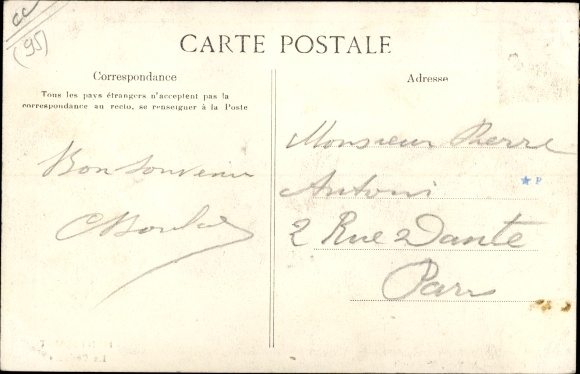 CC
(95)
CARTE POSTALE
Correspondance
Tous les pays étrangers n'acceptent pas la
correspondance au recto, se renseigner à la Poste
Bon souvenir
Adresse
Monsieur Pierre
Antoni
P
2 Rue Dante
Paris